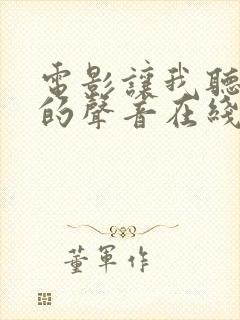 電影讓我聽
的聲音在綫
董軍作